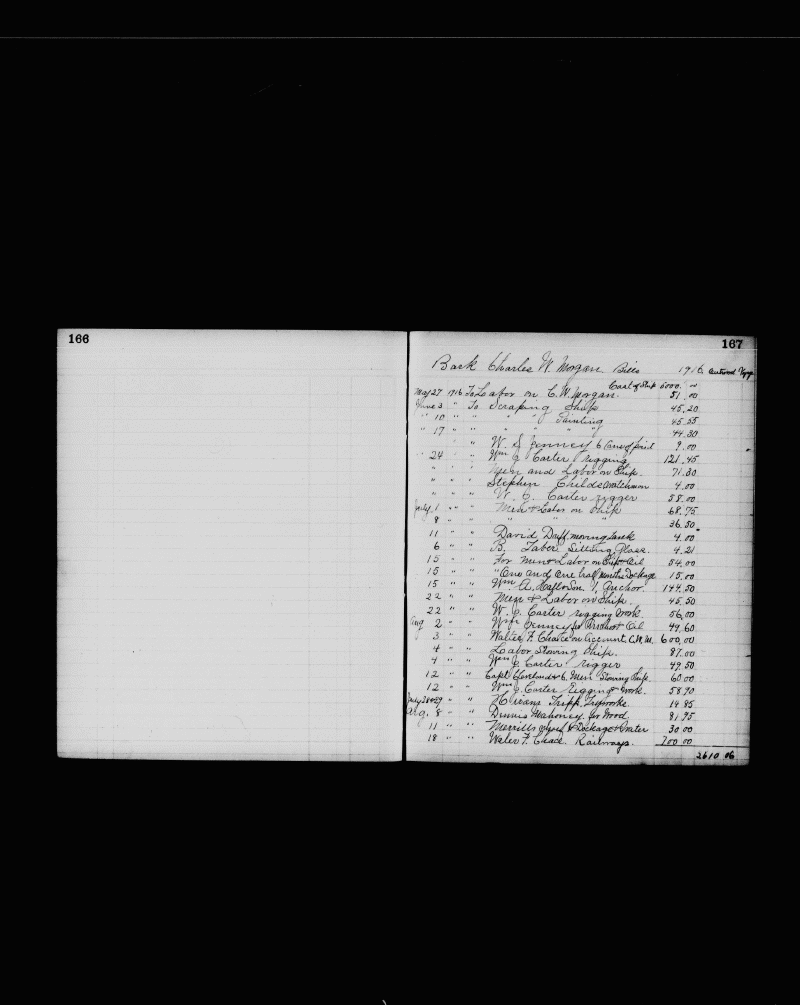 166
167
Bark Charles W. Morgan Bills 1916 Outward Voyage
Cost of Ship 5000.
May 27 1916 To Labor on C.W. Morgan. 51.00
June 3 " To Scraping Ship 45.20
" 10 " " " " Painting 45.55
" 17 " " " " " 44.30
" " W. S. Jenney 6 Cans of paint 9.00
" 24 " " Wm J Carter Rigging 121.45
" " " Men and Labor on Ship. 71.30
" " " Stephen Childs Watchman 4.00
" " " W. J. Carter rigger 58.00
July 1 " " Men & Labor on Ship 68.75
8 " " " " " 36.50
11 " " David Duff moving tank 4.00
6 " " B. Taber Setting Glass. 4.21
15 " " For Men & Labor on Ship & Oil 54.00
15 " " " One and One half months Dockage 15.00
15 " " Wm. A. & Son. 1, Anchor. 144.50
22 " " Men & Labor on Ship. 45.50
22 " " W. J. Carter rigging Work. 56.00
Aug 2 " " Wm Jenney for & Oil 44.60
3 " " Walter F. Chace on Account C.W.M. 600.00
4 " " Labor Stowing Ship. 87.00
4 " " Wm J Carter rigger 49.50
12 " " Capt Cleveland & 6 Men Stowing Ship. 60.00
12 " " Wm J. Carter Rigging Work. 58.90
July 28 & 29 " " Hiram Tripp. Tryworks. 14.85
Aug. 8 " " Dennis Mahoney for Wood. 81.95
11 " " Merrills Wharf & Dockage & Water 30.00
18 " " Walter F. Chace. Railways. 700.00
2610 06